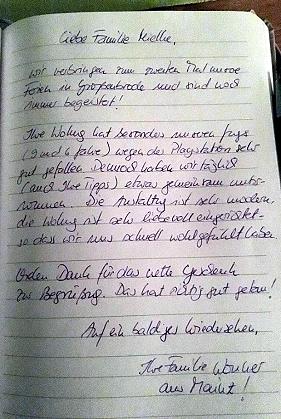 Liebe Familie Mielke,
wir verbringen zum zweiten Mal unsere
Ferien in Großenbrode und sind noch
immer begeistert!
Ihre Wohng hat besonders unseren Jungs
(9 und 6 Jahre) wegen der Playstation sehr
gut gefallen. Dennoch haben wir täglich
(auch Ihre Tipps) etwas gemeinsam unter-
nommen. Die Ausstattung ist sehr modern,
die Wohng ist sehr liebevoll eingerichtet -
so dass wir uns schnell wohlgefühlt haben
Vielen Dank für das nette Geschenk
zur Begrüßung. Das hat richtig gut getan!
Auf ein baldiges Wiedersehen,
Ihre Familie
aus